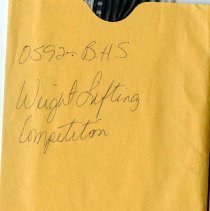 0592-BHS
Weight Lifting
Competiton